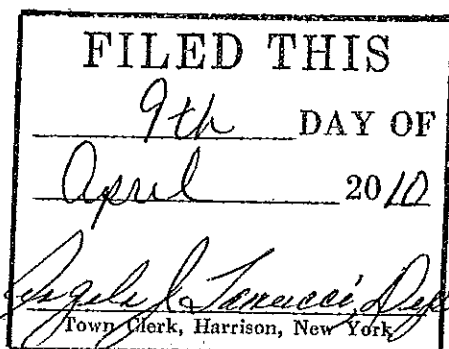 FILED THIS
9th DAY OF
April 2010
Angelo J.
Town Clerk, Harrison, New York